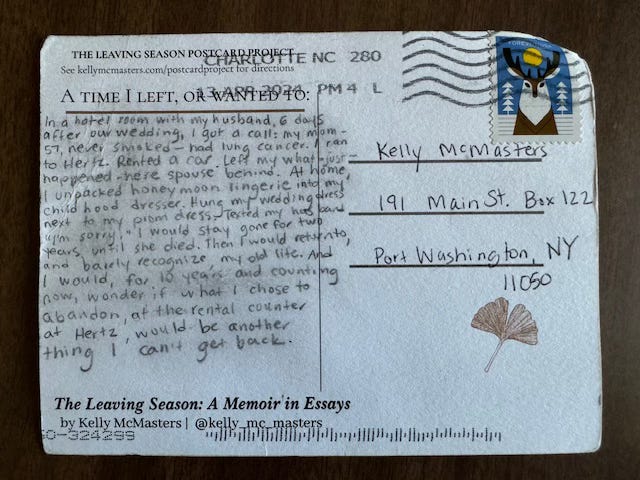 THE LEAVING SEASON POSTCARD PROJECT
See kellymcmasters.com/postcardproject for directions
CHARLOTTE NC 280
13 APR 2024 PM 4 L
FOREVER USA
A TIME I LEFT, OR WANTED TO:
In a hotel room with my husband, 6 days
after our wedding, I got a call: my mom-
57, never smoked - had lung cancer. I ran
to Hertz. Rented a car. Left my what-just-
happened-here spouse behind. At home,
I unpacked honeymoon lingerie into my
childhood dresser. Hung my wedding dress
next to my prom dress. Texted my husband
"I'm sorry." I would stay gone for two
years until she died. Then I would return to,
and barely recognize, my old life. And
I would, for 10 years and counting
now, wonder if what I chose to
abandon, at the rental counter
at Hertz, would be another
thing I can't get back.
Kelly McMasters
191 Main St. Box 122
Port Washington, NY
11050
The Leaving Season: A Memoir in Essays
by Kelly McMasters | @kelly_mc_masters
50-324299